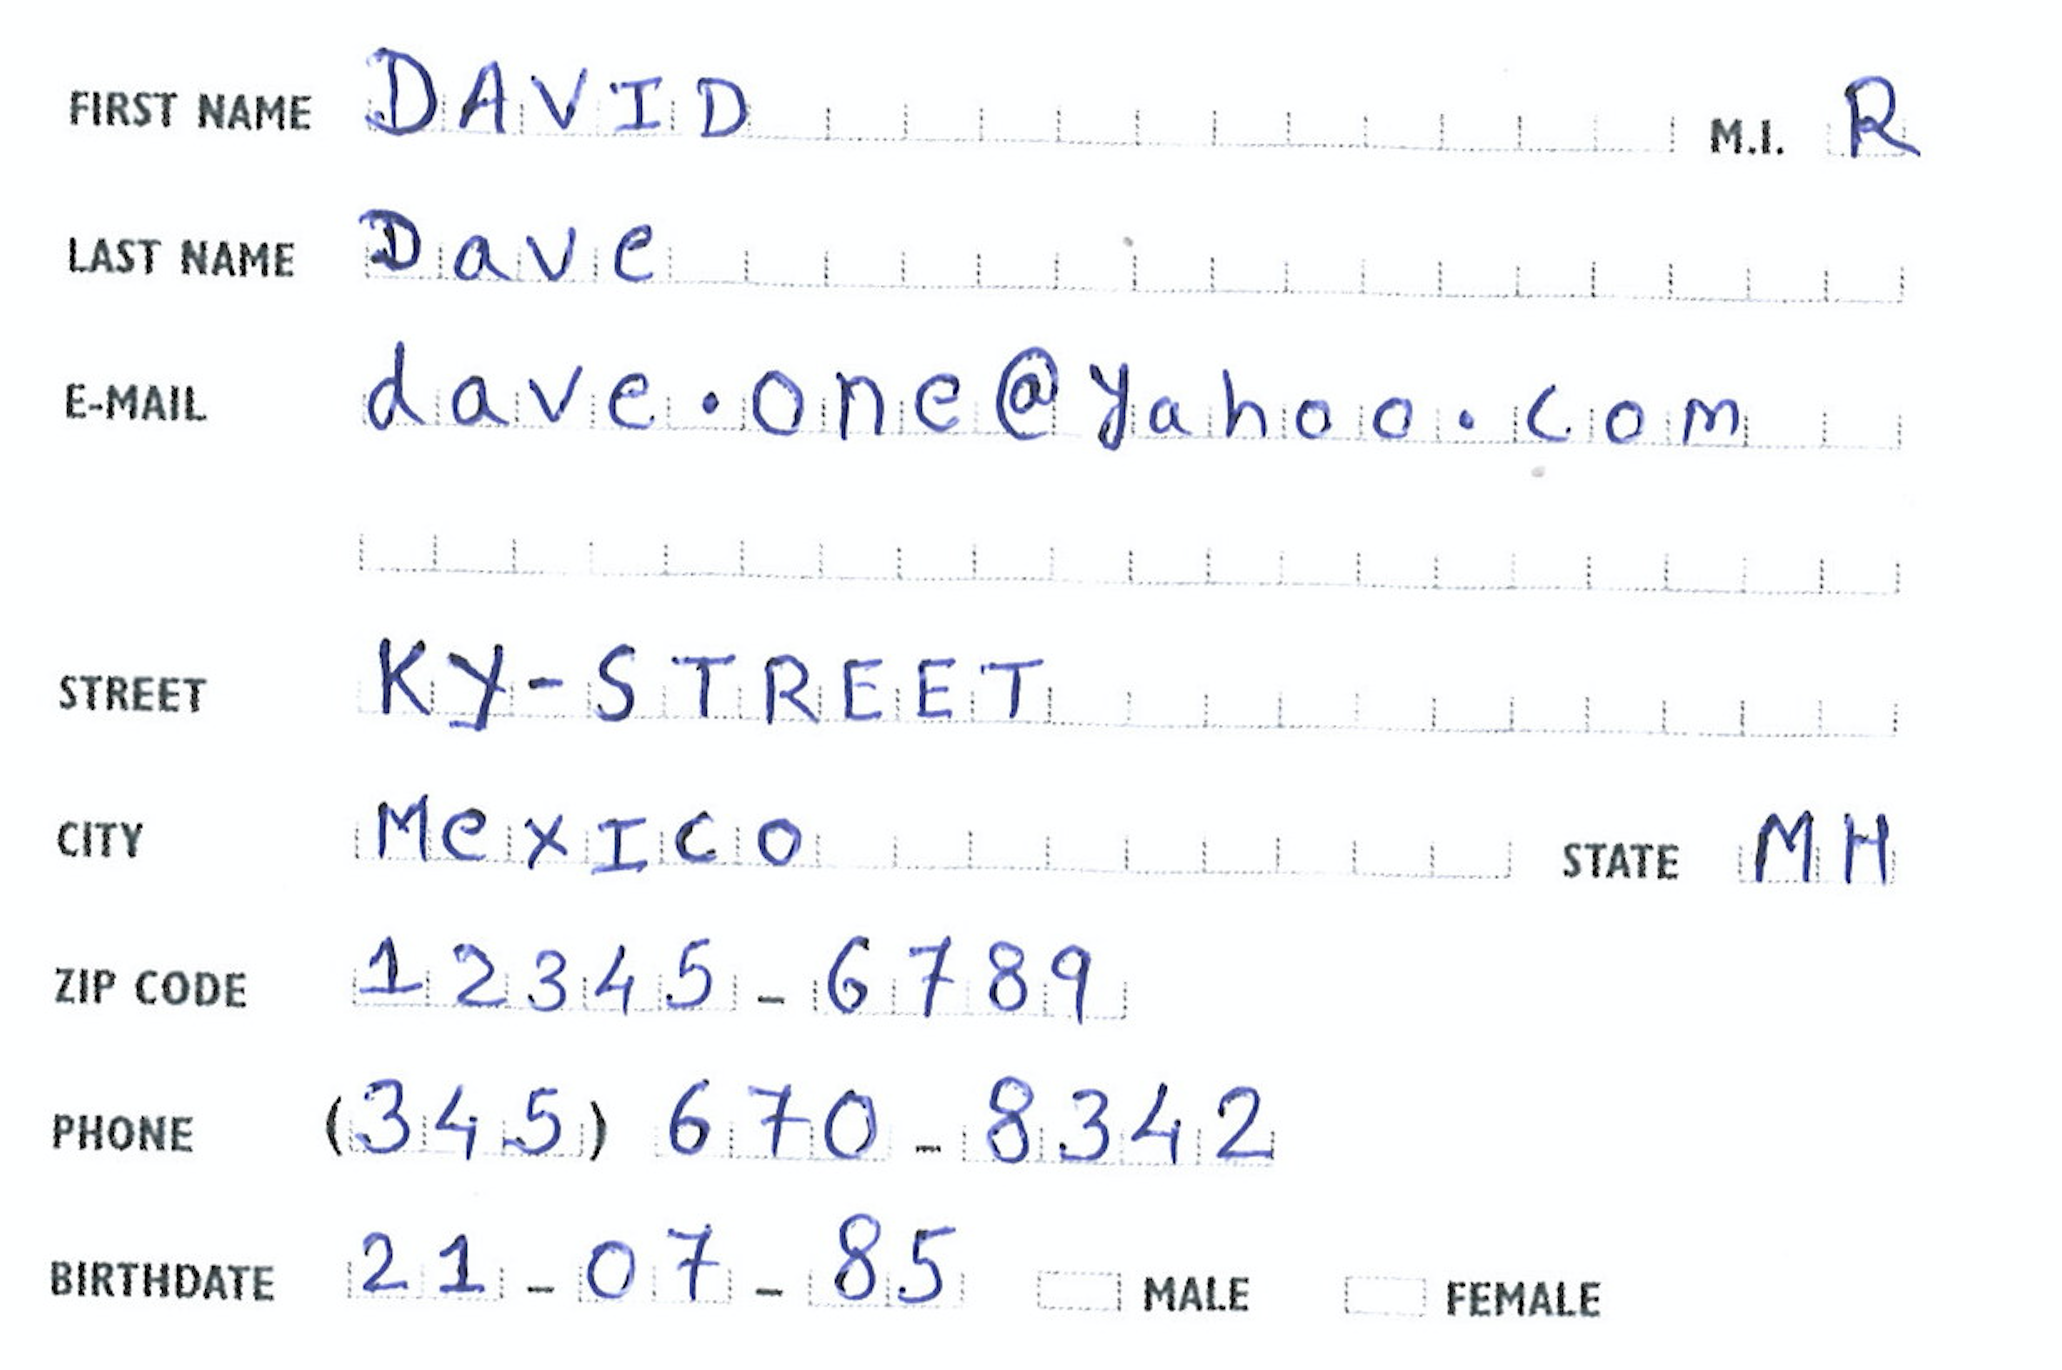 FIRST NAME DAVID M.I. R
LAST NAME Dave
E-MAIL dave.one@yahoo.com
STREET KY-STREET
CITY MeXICO STATE MH
ZIP CODE 12345 - 6789
PHONE (345) 670 - 8342
BIRTHDATE 21 - 07 - 85 MALE FEMALE